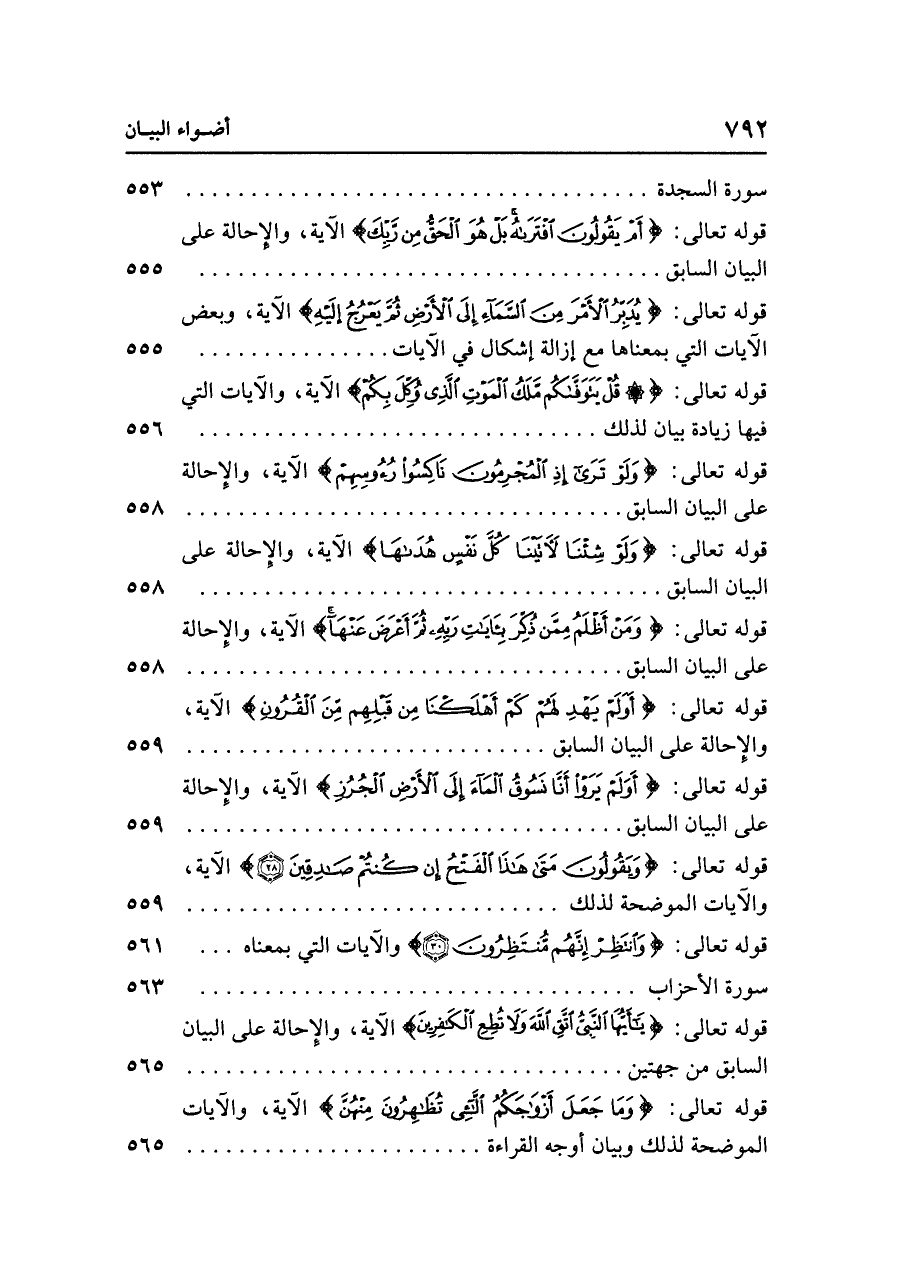 ٧٩٢ أضـواء البيـان
سورة السجدة ..................................... ٥٥٣
قوله تعالى: ﴿ أَمْ يَقُولُونَ ٱفْتَرَىٰهُ ۚ بَلْ هُوَ ٱلْحَقُّ مِن رَّبِّكَ﴾ الآية، والإحالة على
البيان السابق ..................................... ٥٥٥
قوله تعالى: ﴿ يُدَبِّرُ ٱلْأَمْرَ مِنَ ٱلسَّمَآءِ إِلَى ٱلْأَرْضِ ثُمَّ يَعْرُجُ إِلَيْهِ﴾ الآية، وبعض
الآيات التي بمعناها مع إزالة إشكال في الآيات............... ٥٥٥
قوله تعالى: ﴿ ۞ قُلْ يَتَوَفَّىٰكُم مَّلَكُ ٱلْمَوْتِ ٱلَّذِى وُكِّلَ بِكُمْ﴾ الآية، والآيات التي
فيها زيادة بيان لذلك ............................... ٥٥٦
قوله تعالى: ﴿ وَلَوْ تَرَىٰٓ إِذِ ٱلْمُجْرِمُونَ نَاكِسُوا۟ رُءُوسِهِمْ ﴾ الآية، والإحالة
على البيان السابق................................... ٥٥٨
قوله تعالى: ﴿ وَلَوْ شِئْنَا لَءَاتَيْنَا كُلَّ نَفْسٍ هُدَىٰهَا﴾ الآية، والإحالة على
البيان السابق ..................................... ٥٥٨
قوله تعالى: ﴿ وَمَنْ أَظْلَمُ مِمَّن ذُكِّرَ بِـَٔايَٰتِ رَبِّهِۦ ثُمَّ أَعْرَضَ عَنْهَآ ۚ﴾ الآية، والإحالة
على البيان السابق................................... ٥٥٨
قوله تعالى: ﴿ أَوَلَمْ يَهْدِ لَهُمْ كَمْ أَهْلَكْنَا مِن قَبْلِهِم مِّنَ ٱلْقُرُونِ ﴾ الآية،
والإحالة على البيان السابق ............................ ٥٥٩
قوله تعالى: ﴿ أَوَلَمْ يَرَوْا۟ أَنَّا نَسُوقُ ٱلْمَآءَ إِلَى ٱلْأَرْضِ ٱلْجُرُزِ ﴾ الآية، والإحالة
على البيان السابق................................... ٥٥٩
قوله تعالى: ﴿ وَيَقُولُونَ مَتَىٰ هَٰذَا ٱلْفَتْحُ إِن كُنتُمْ صَٰدِقِينَ ٢٨﴾ الآية،
والآيات الموضحة لذلك ............................. ٥٥٩
قوله تعالى: ﴿ وَٱنتَظِرْ إِنَّهُم مُّنتَظِرُونَ ٣٠﴾ والآيات التي بمعناه ... ٥٦١
سورة الأحزاب ................................... ٥٦٣
قوله تعالى: ﴿ يَٰٓأَيُّهَا ٱلنَّبِىُّ ٱتَّقِ ٱللَّهَ وَلَا تُطِعِ ٱلْكَٰفِرِينَ﴾ الآية، والإحالة على البيان
السابق من جهتين................................... ٥٦٥
قوله تعالى: ﴿ وَمَا جَعَلَ أَزْوَٰجَكُمُ ٱلَّٰٓـِٔى تُظَٰهِرُونَ مِنْهُنَّ ﴾ الآية، والآيات
الموضحة لذلك وبيان أوجه القراءة ....................... ٥٦٥